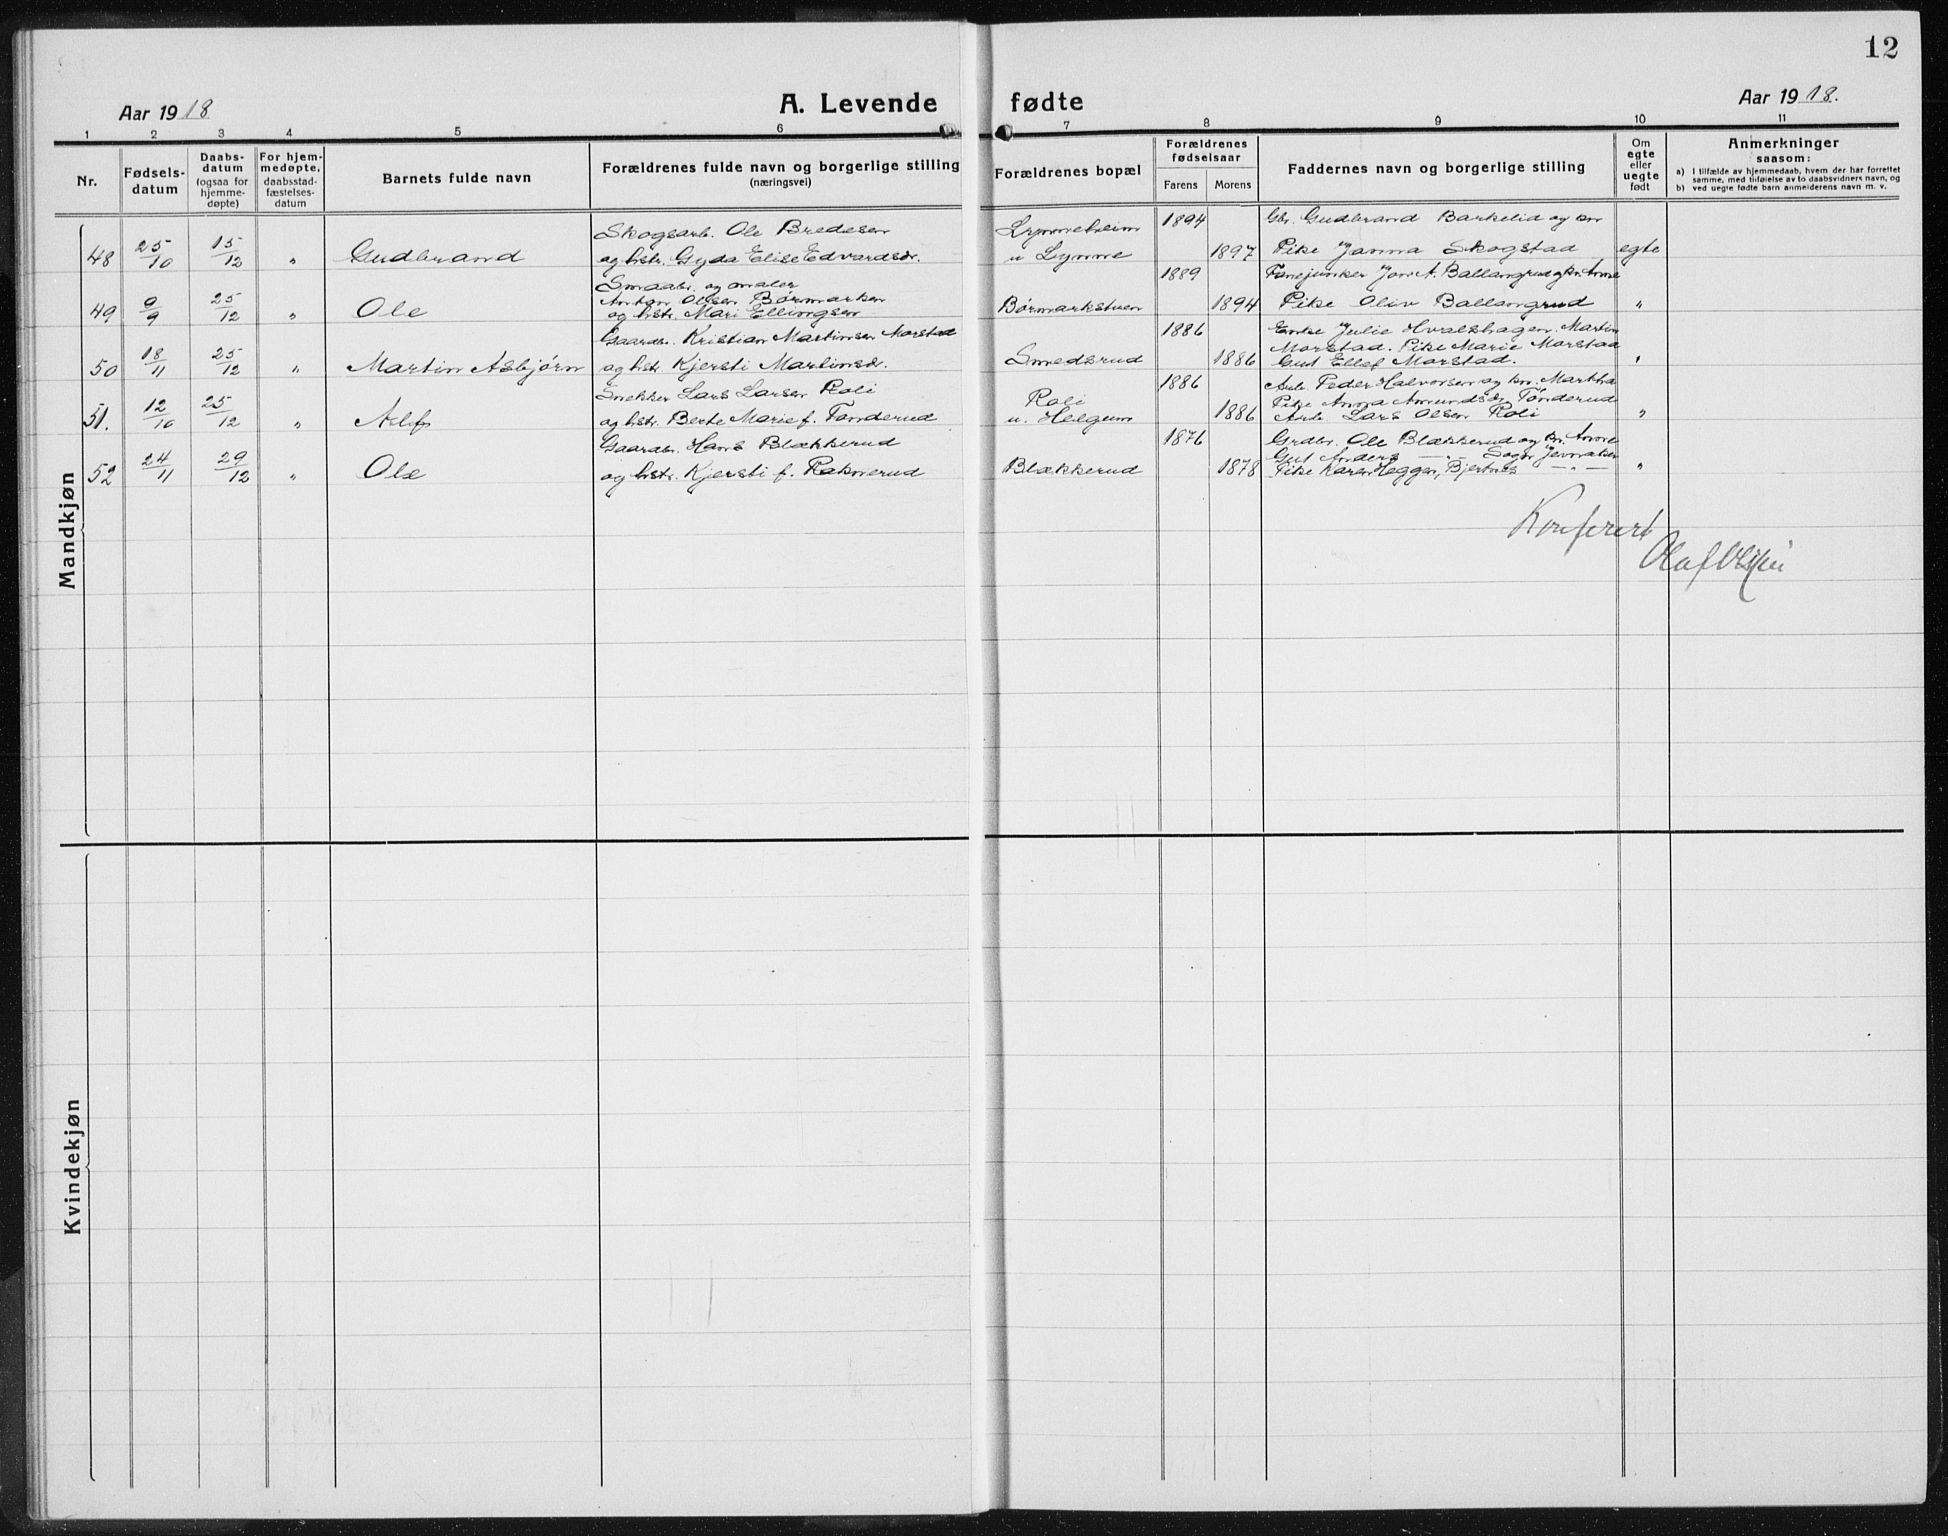 12
Aar 1918
A. Levende fødte
Aar 1918.
1 2 3 4 5 6 7 8 9 10 11
Nr.
Fødsels-
datum
Daabs-
datum
(ogsaa for
hjemme-
døpte)
For hjem-
medøpte,
daabsstad-
fæstelses-
datum
Barnets fulde navn
Forældrenes fulde navn og borgerlige stilling
(næringsvei)
Forældrenes bopæl
Forældrenes
fødselsaar
Farens Morens
Faddernes navn og borgerlige stilling
Om
egte
eller
uegte
født
Anmerkninger
saasom:
a) I tilfælde av hjemmedaab, hvem der har forrettet
samme, med tilføielse av to daabsvidners navn, og
b) ved uegte fødte barn anmelderens navn m. v.
Mandkjøn
Skogsarb. Ole Bredesen Lynneheim 1894 Gbr. Gudbrand Barkelid og kn
48 25/10 15/12 " Gudbrand og hstr. Gyda Elise Edvardsdr. u Lynne 1897 Pike Janna Skogstad egte
Smaabr. og maler 1889 Fanejunker Jon A. Ballangrud og kn. Anne
Anton Olsen Børmarken
49 9/9 25/12 " Ole og hstr. Mari Ellingsen Børmarkstuen 1894 Pike Oliv Ballangrud "
Gaardbr. Kristian Martinsen Morstad 1886 Enke Julie Hvalshagen. Martin
Morstad. Pike Marie Morstad
50 18/11 25/12 " Martin Asbjørn og hstr Kjersti Martinsdr. Smedsrud 1886 Gut Ellef Morstad. "
Snekker Lars Larsen Roli Roli 1886 Arb. Peder Halvorsen og kn. Martha
Pike Anna Amundsdr Tønderud
51. 12/10 25/12 " Alf og hstr. Berte Marie f. Tønderud u. Helgum 1886 Arb Lars Olsen Roli "
Gaardbr. Hans Blækkerud 1876 Grdbr. Ole Blækkerud og kn. Anne
Gut Anders —"— Jevnaker
52 24/11 29/12 " Ole og hstr. Kjersti f. Raknerud Blækkerud 1878 Pike Karen Heggen, Bjertnes —"— "
Konferert
Olaf
Kvindekjøn